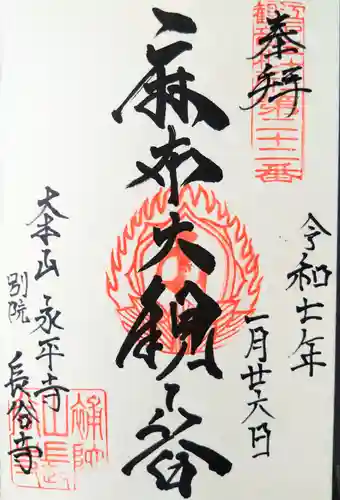 奉拝
第二十二番
麻布大観音
令和七年
一月廿六日
大本山永平寺
別院
長谷寺
補陀山長谷寺